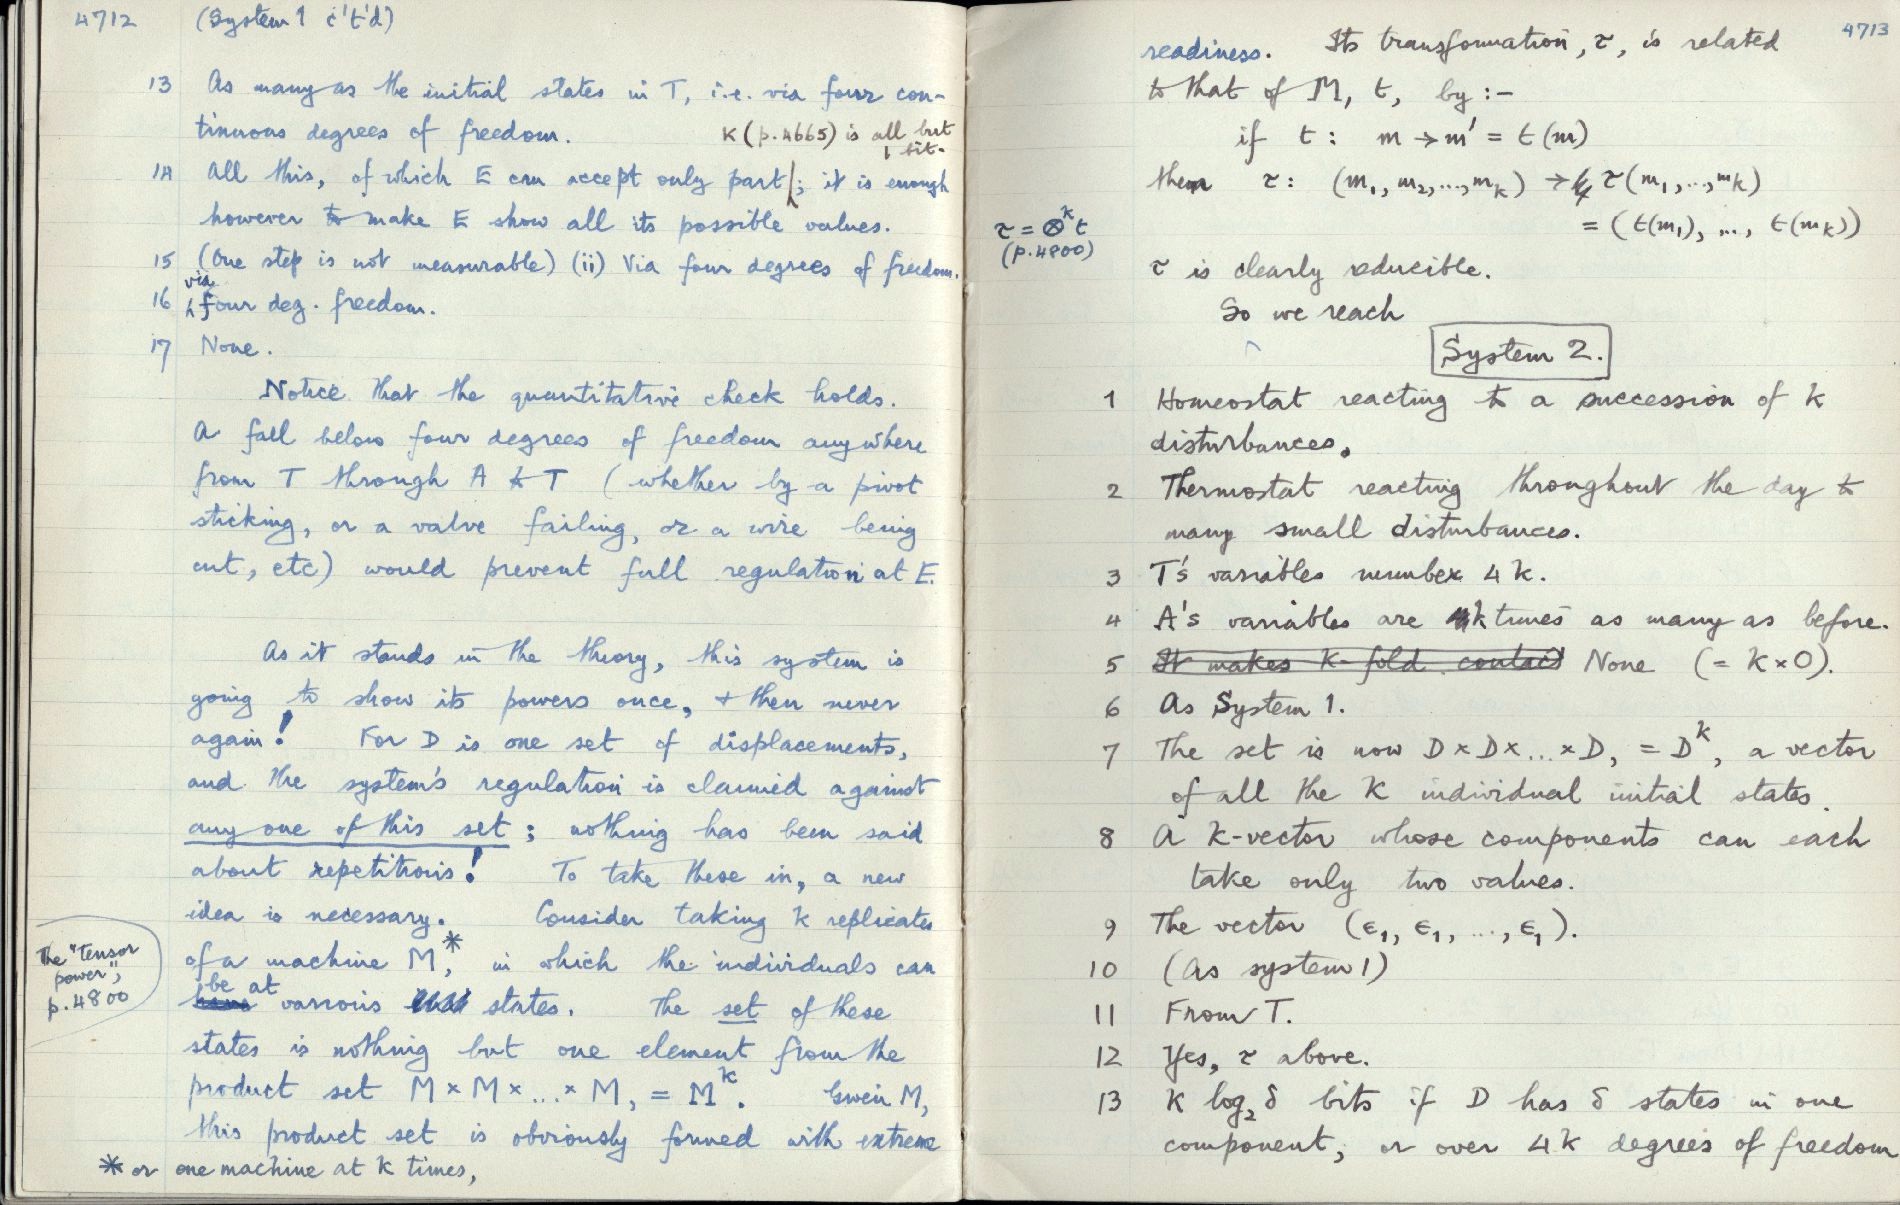 4712 (System 1 c't'd)
13 As many as the initial states in T, i.e. via four con-
tinuous degrees of freedom.
K (p.4665) is all but
1 bit.
14 All this, of which E can accept only part; it is enough
however to make E show all its possible values.
15 (One step is not measurable) (ii) Via four degrees of freedom.
via
16 four deg. freedom.
17 None.
Notice that the quantitative check holds.
A fall below four degrees of freedom anywhere
from T through A to T (whether by a pivot
sticking, or a valve failing, or a wire being
cut, etc) would prevent full regulation at E.
As it stands in the theory, this system is
going to show its powers once, + then never
again! For D is one set of displacements,
and the system's regulation is claimed against
any one of this set; nothing has been said
about repetitions! To take these in, a new
idea is necessary. Consider taking k replicates
of a machine M,* in which the individuals can
be at
have various states. The set of these
states is nothing but one element from the
product set M × M × ... × M, = Mᵏ. Given M,
this product set is obviously formed with extreme
* or one machine at k times,
The "tensor
power",
p.4800
4713
readiness. Its transformation, τ, is related
to that of M, t, by :-
if t: m → m' = t(m)
then τ: (m₁, m₂, ..., mₖ) → τ(m₁, ..., mₖ)
= (t(m₁), ..., t(mₖ))
τ = ⊗ᵏ t
(p.4800)
τ is clearly reducible.
So we reach
System 2.
1 Homeostat reacting to a succession of k
disturbances.
2 Thermostat reacting throughout the day to
many small disturbances.
3 T's variables number 4k.
4 A's variables are k times as many as before.
5 It makes k-fold contact None (= k×0).
6 As System 1.
7 The set is now D × D × ... × D, = Dᵏ, a vector
of all the k individual initial states.
8 A k-vector whose components can each
take only two values.
9 The vector (ε₁, ε₁, ..., ε₁).
10 (As system 1)
11 From T.
12 Yes, τ above.
13 k log₂ δ bits if D has δ states in one
component; or over 4k degrees of freedom